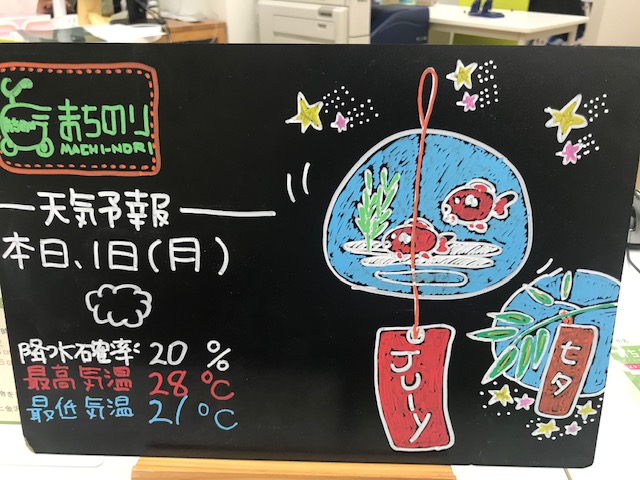 まちのり
MACHI-NORI
天気予報
本日、1日(月)
降水確率 20 %
最高気温 28 ℃
最低気温 21 ℃
July
七夕